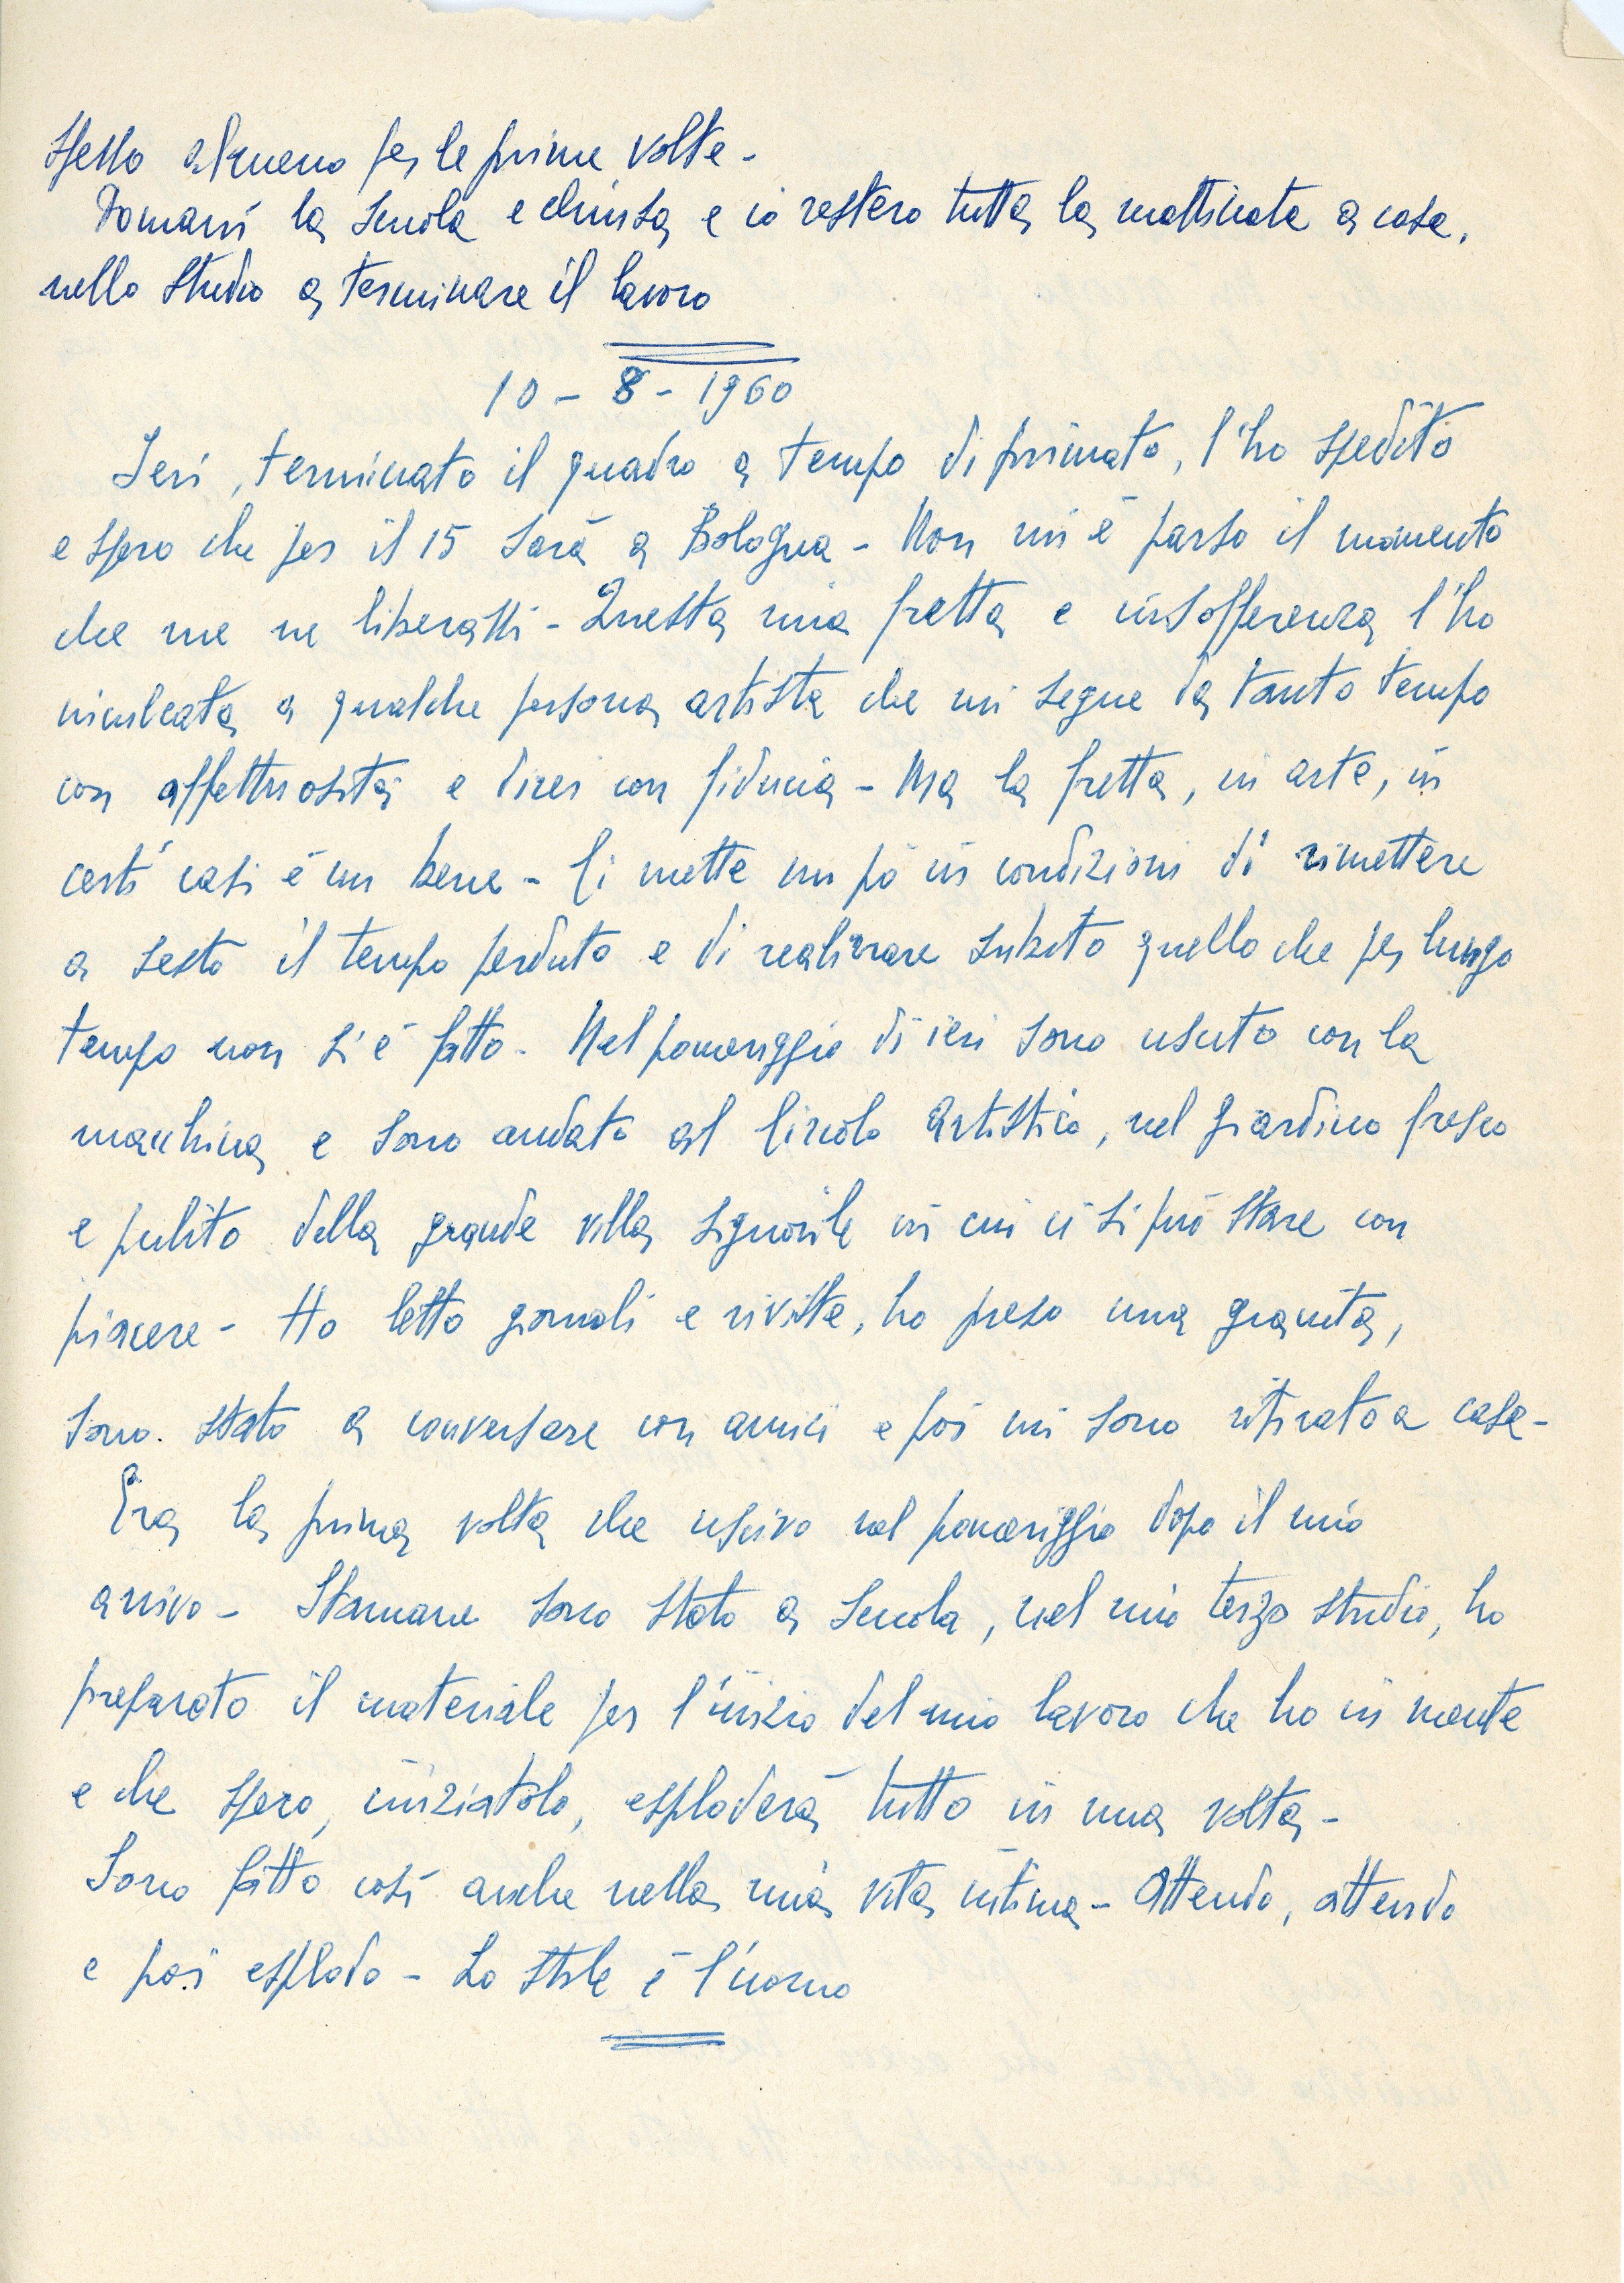 spesso almeno per le prime volte -
Domani la scuola e chiusa e io restero tutta la mattinata a casa,
nello studio a terminare il lavoro
10 - 8 - 1960
Ieri, terminato il quadro a tempo di primato, l'ho spedito
e spero che per il 15 sarà a Bologna - Non mi è parso il momento
che me ne liberassi - Questa mia fretta e insofferenza l'ho
inculcata a qualche persona artista che mi segue da tanto tempo
con affettuosità e direi con fiducia - Ma la fretta, in arte, in
certi casi è un bene - Ci mette un pò in condizioni di rimettere
a sesto il tempo perduto e di realizzare subito quello che per lungo
tempo non si è fatto - Nel pomeriggio di ieri sono uscito con la
macchina e sono andato al Circolo Artistico, nel giardino fresco
e pulito della grande villa signorile in cui ci si può stare con
piacere - Ho letto giornali e riviste, ho preso una granita,
sono stato a conversare con amici e poi mi sono ritirato a casa -
Era la prima volta che uscivo nel pomeriggio dopo il mio
arrivo - Stamane sono stato a Scuola, nel mio terzo studio, ho
preparato il materiale per l'inizio del mio lavoro che ho in mente
e che spero, iniziatolo, esploderà tutto in una volta -
Sono fatto così anche nella mia vita intima - Attendo, attendo
e poi esplodo - Lo stile è l'uomo